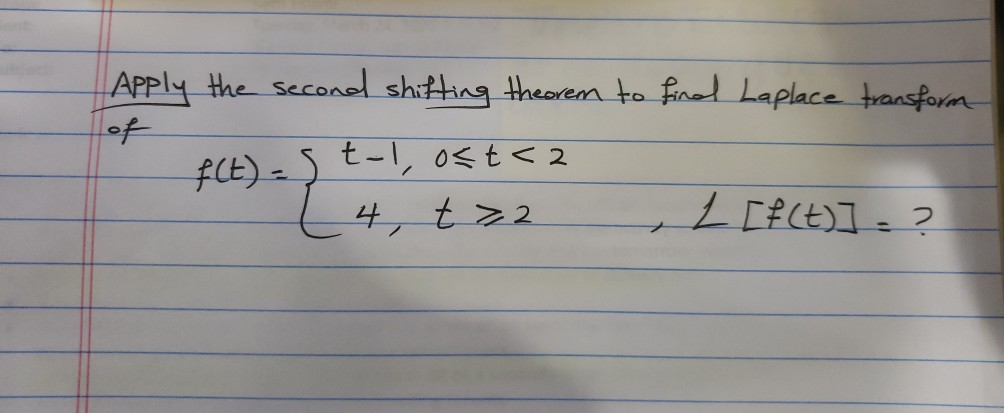 Apply the second shifting theorem to find Laplace transform
of
f(t) = { t-1, 0 ≤ t < 2
4, t ≥ 2 , L [f(t)] = ?